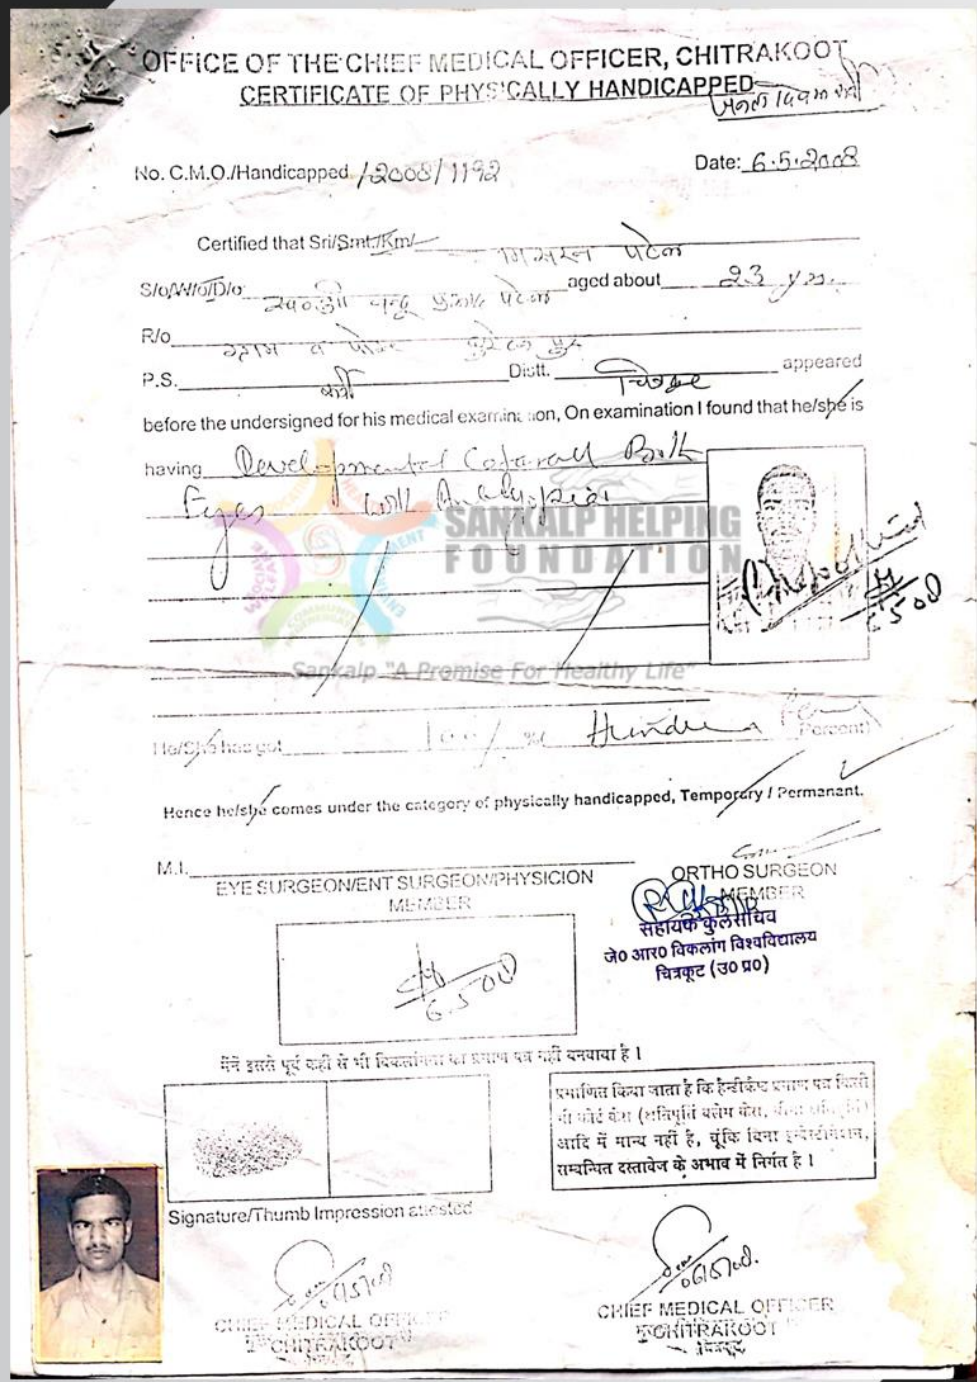 OFFICE OF THE CHIEF MEDICAL OFFICER, CHITRAKOOT
CERTIFICATE OF PHYSICALLY HANDICAPPED
No. C.M.O./Handicapped /2008/1192
Date: 6.5.2008
Certified that Sri/Smt./Km/ पटेल
S/o/W/o/D/o पटेल aged about 23 yrs.
R/o ग्राम व पोस्ट
P.S. कर्वी Distt. चित्रकूट appeared
before the undersigned for his medical examination, On examination I found that he/she is
having Developmental Cataract Both
Eyes with Amblyopia
SANKALP HELPING
FOUNDATION
Sankalp "A Promise For Healthy Life"
6.5.08
He/She has got 100% Hundred Percent)
Hence he/she comes under the category of physically handicapped, Temporary / Permanant.
M.I.
EYE SURGEON/ENT SURGEON/PHYSICION
MEMBER
ORTHO SURGEON
MEMBER
सहायक कुलसचिव
जे० आर० विकलांग विश्वविद्यालय
चित्रकूट (उ० प्र०)
6.5.08
मैंने इससे पूर्व कहीं से भी विकलांगता का प्रमाण पत्र नहीं बनवाया है ।
प्रमाणित किया जाता है कि हैन्डीकैप्ड प्रमाण पत्र किसी
भी कोर्ट केस (क्षतिपूर्ति क्लेम केस,
आदि में मान्य नहीं है, चूंकि बिना इन्वेस्टीगेशन,
सम्बन्धित दस्तावेज के अभाव में निर्गत है ।
Signature/Thumb Impression attested
CHIEF MEDICAL OFFICER
CHITRAKOOT
CHIEF MEDICAL OFFICER
CHITRAKOOT
चित्रकूट